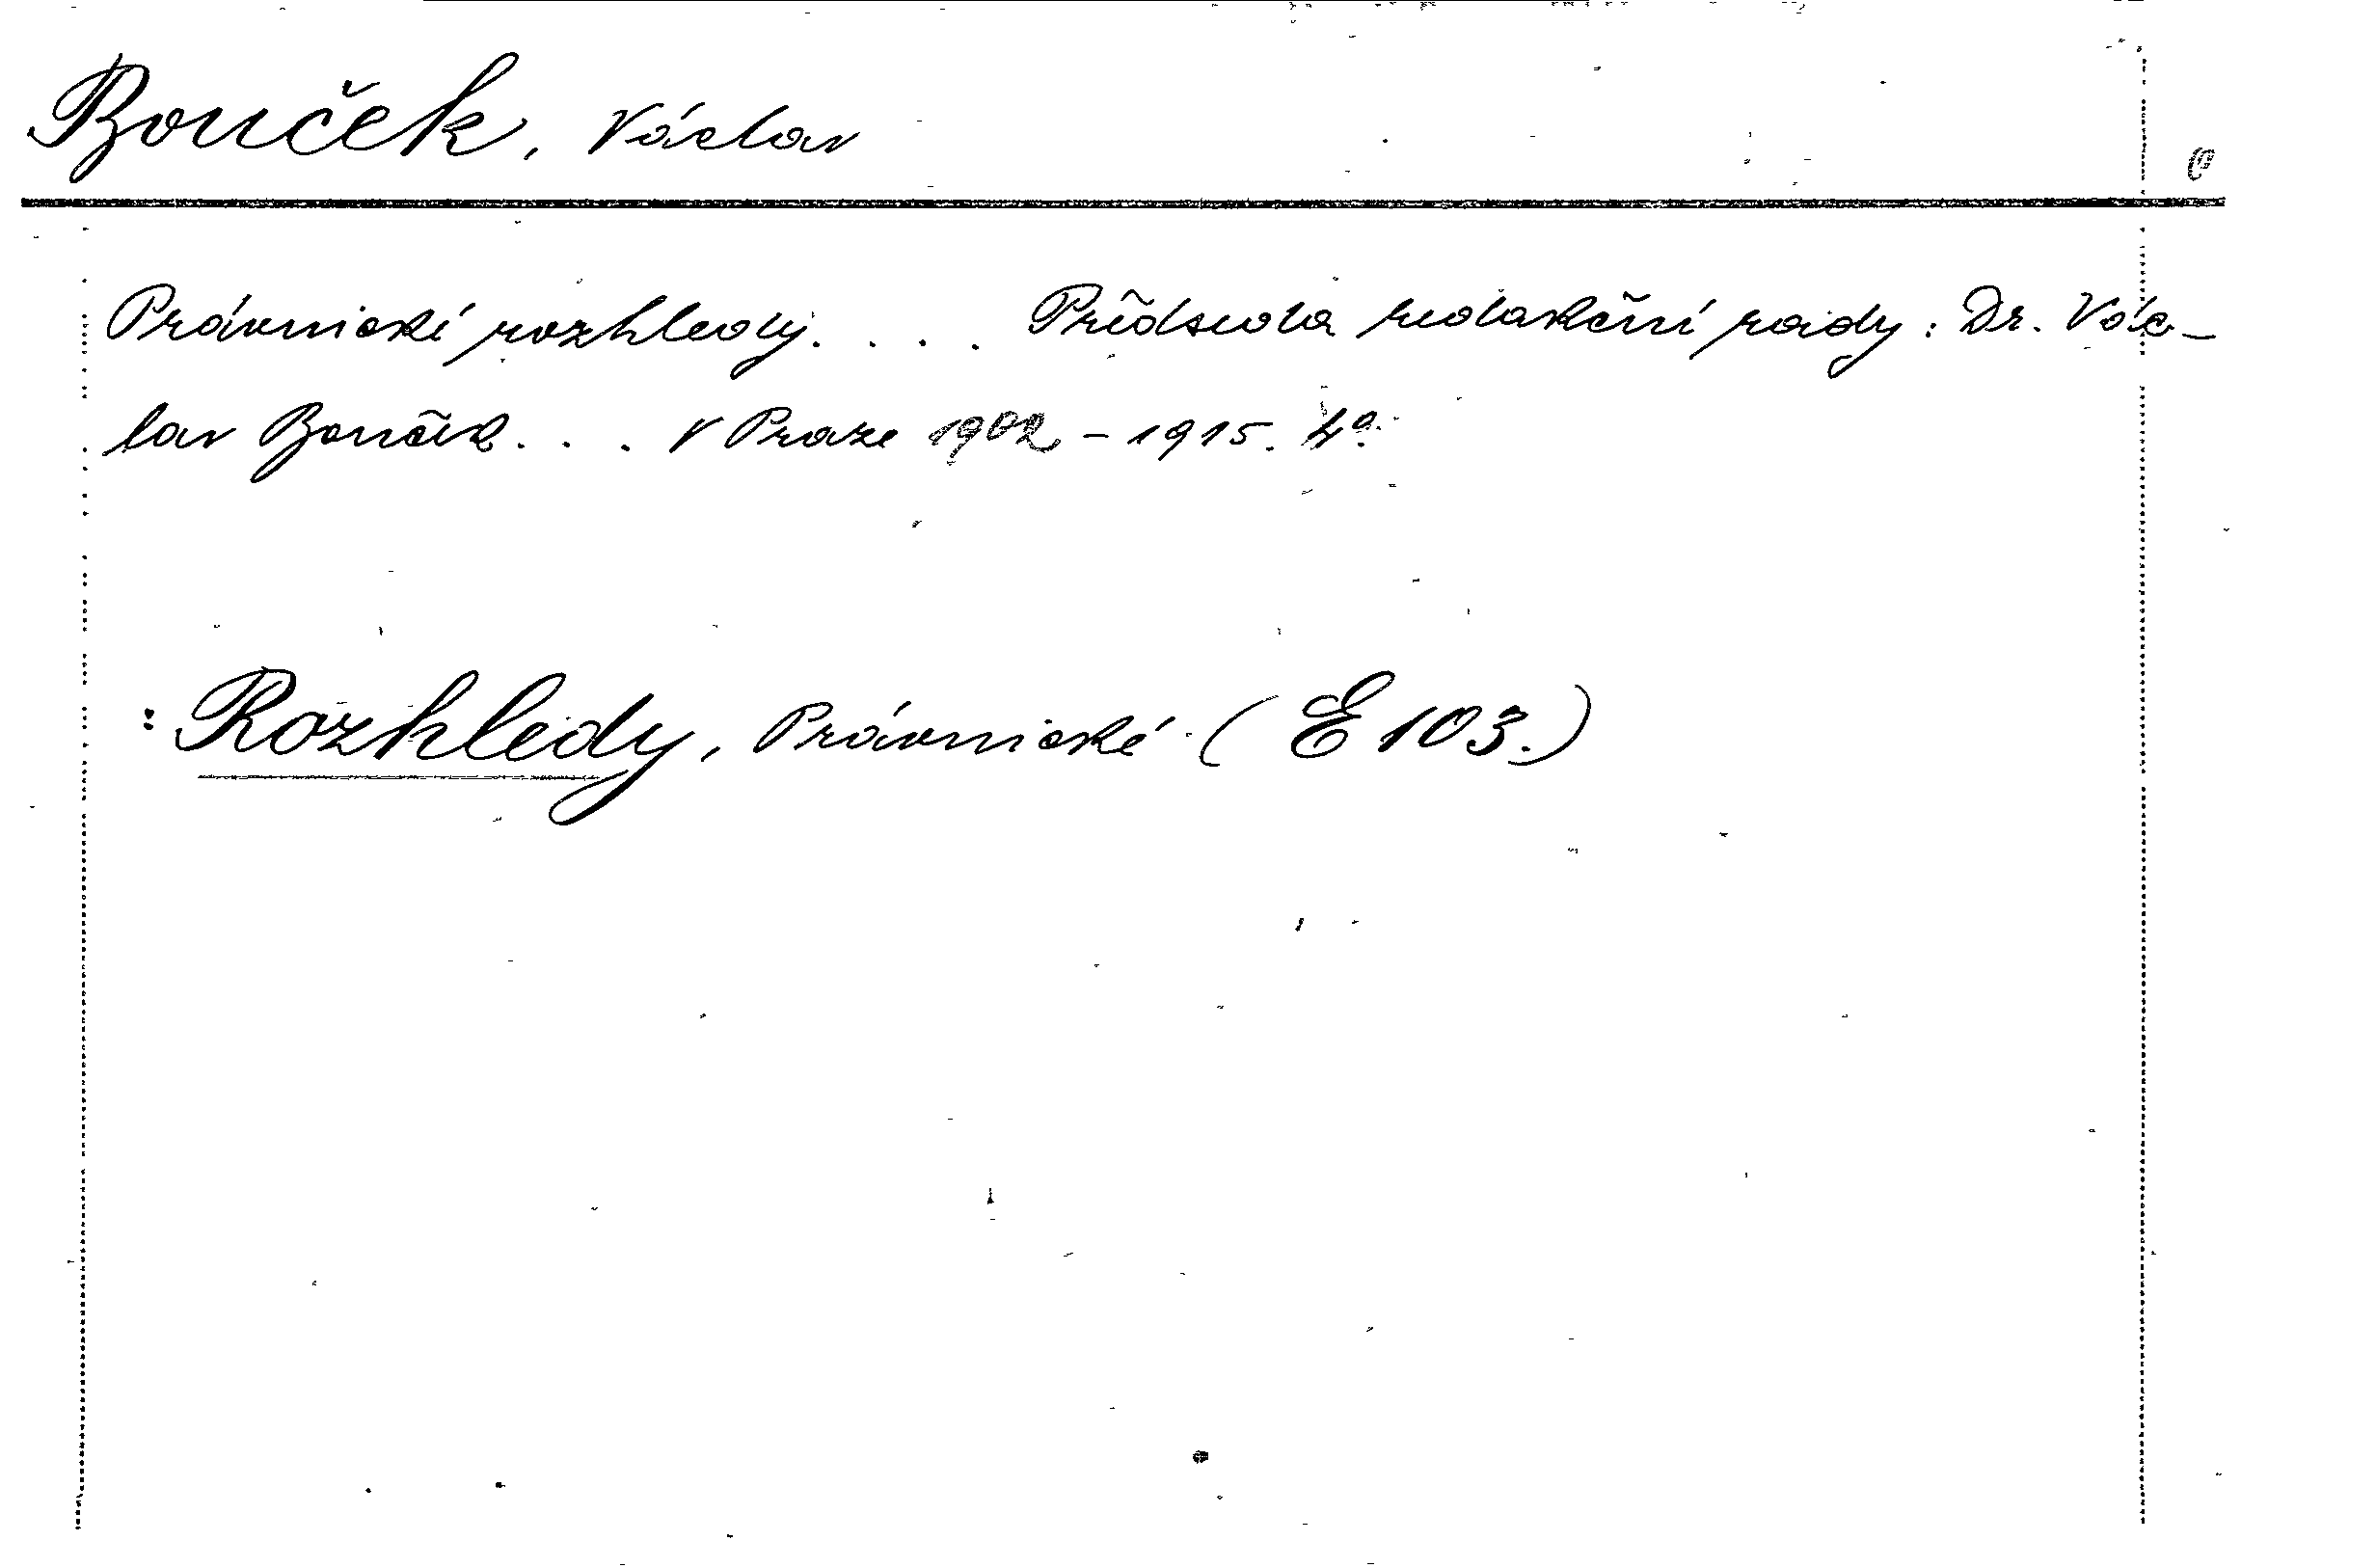 Bouček, Václav
Právnické rozhledy. . . . Předseda redakční rady: Dr. Vác-
lav Bouček. . . V Praze 1902 - 1915. 4°.
: Rozhledy, Právnické (E 103.)